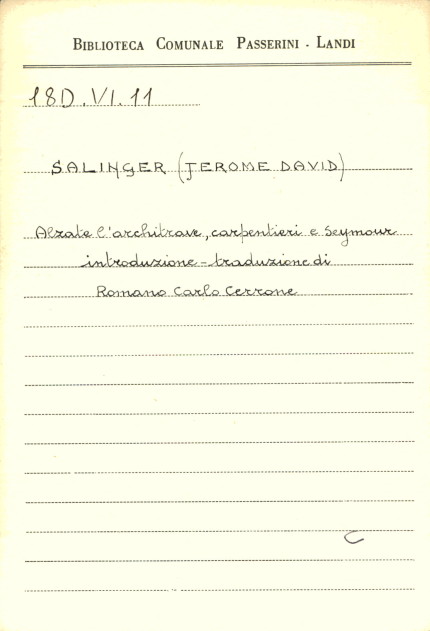 BIBLIOTECA COMUNALE PASSERINI - LANDI
18D.VI.11
SALINGER (JEROME DAVID)
Alzate l'architrave, carpentieri e Seymour
introduzione - traduzione di
Romano Carlo Cerrone